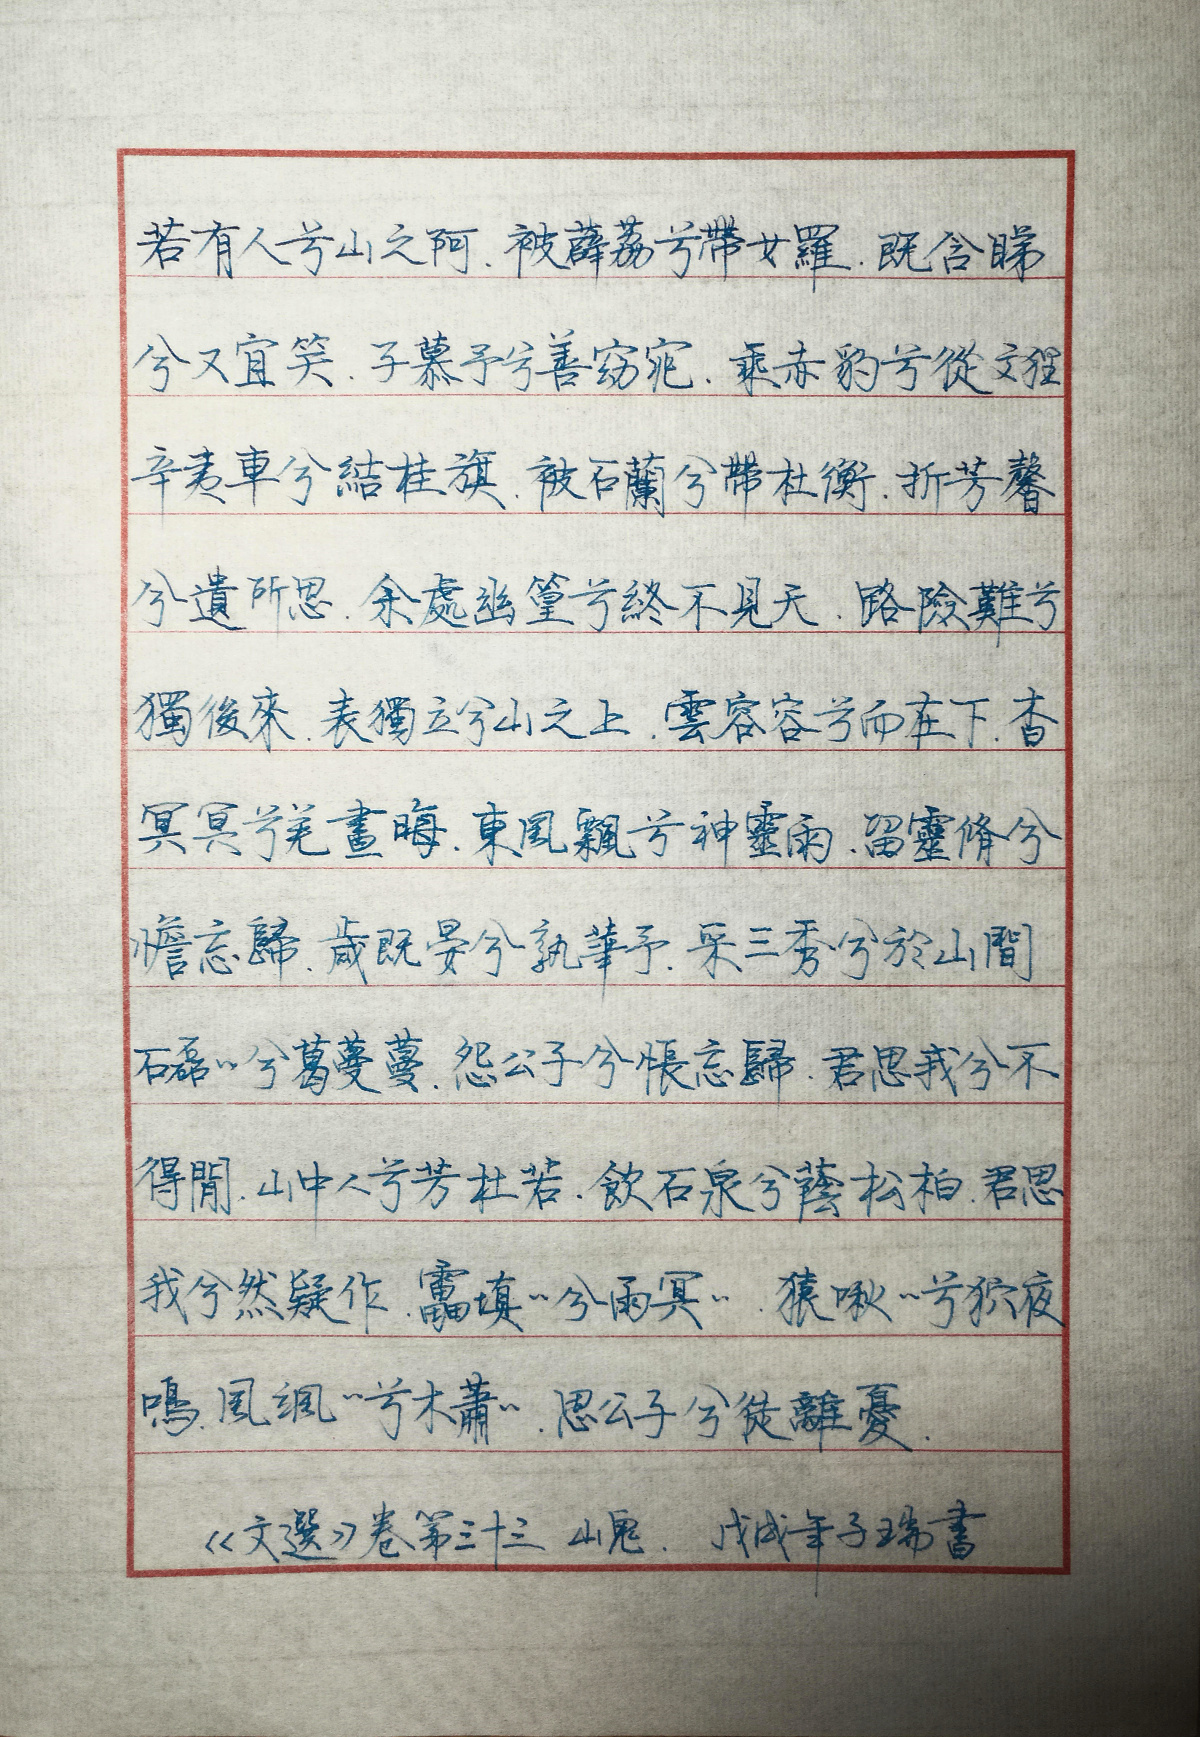 若有人兮山之阿.被薜荔兮帶女羅.既含睇
兮又宜笑.子慕予兮善窈窕.乘赤豹兮從文狸
辛夷車兮結桂旗.被石蘭兮帶杜衡.折芳馨
兮遺所思.余處幽篁兮終不見天.路險難兮
獨後來.表獨立兮山之上.雲容容兮而在下.杳
冥冥兮羌晝晦.東風飄兮神靈雨.留靈脩兮
憺忘歸.歲既晏兮孰華予.采三秀兮於山間
石磊〃兮葛蔓蔓.怨公子兮悵忘歸.君思我兮不
得閒.山中人兮芳杜若.飲石泉兮蔭松柏.君思
我兮然疑作.靁填〃兮雨冥〃.猿啾〃兮狖夜
鳴.風颯〃兮木蕭〃.思公子兮徒離憂.
《文選》卷第三十三 山鬼. 戊戌年子瑞書